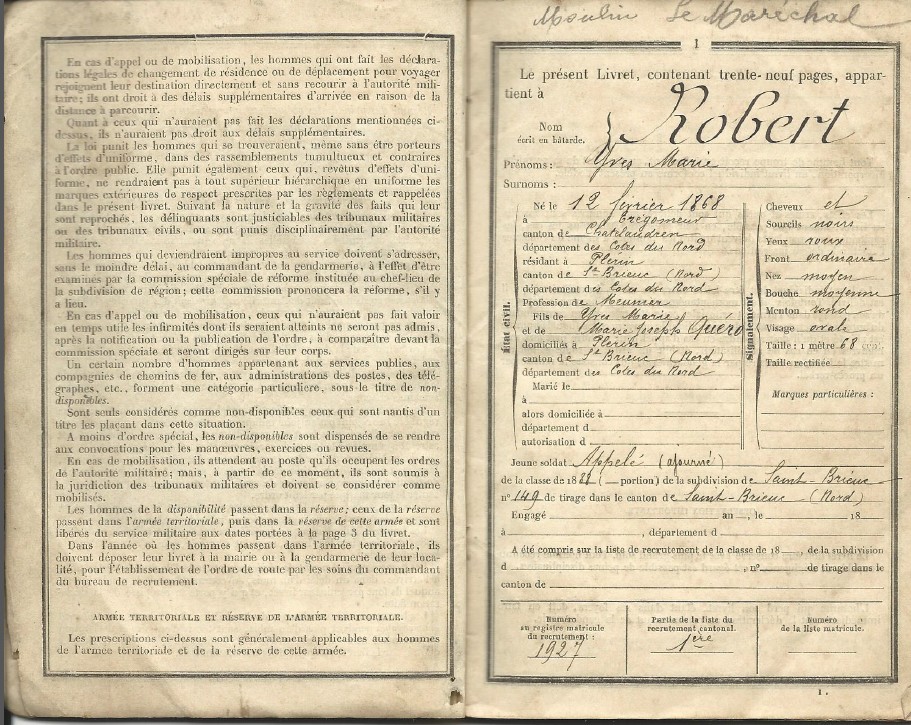 En cas d'appel ou de mobilisation, les hommes qui ont fait les déclara-
tions légales de changement de résidence ou de déplacement pour voyager
rejoignent leur destination directement et sans recourir à l'autorité mili-
taire; ils ont droit à des délais supplémentaires d'arrivée en raison de la
distance à parcourir.
Quant à ceux qui n'auraient pas fait les déclarations mentionnées ci-
dessus, ils n'auraient pas droit aux délais supplémentaires.
La loi punit les hommes qui se trouveraient, même sans être porteurs
d'effets d'uniforme, dans des rassemblements tumultueux et contraires
à l'ordre public. Elle punit également ceux qui, revêtus d'effets d'uni-
forme, ne rendraient pas à tout supérieur hiérarchique en uniforme les
marques extérieures de respect prescrites par les règlements et rappelées
dans le présent livret. Suivant la nature et la gravité des faits qui leur
sont reprochés, les délinquants sont justiciables des tribunaux militaires
ou des tribunaux civils, ou sont punis disciplinairement par l'autorité
militaire.
Les hommes qui deviendraient impropres au service doivent s'adresser,
sans le moindre délai, au commandant de la gendarmerie, à l'effet d'être
examinés par la commission spéciale de réforme instituée au chef-lieu de
la subdivision de région; cette commission prononcera la réforme, s'il y
a lieu.
En cas d'appel ou de mobilisation, ceux qui n'auraient pas fait valoir
en temps utile les infirmités dont ils seraient atteints ne seront pas admis,
après la notification ou la publication de l'ordre, à comparaître devant la
commission spéciale et seront dirigés sur leur corps.
Un certain nombre d'hommes appartenant aux services publics, aux
compagnies de chemins de fer, aux administrations des postes, des télé-
graphes, etc., forment une catégorie particulière, sous le titre de non-
disponibles.
Sont seuls considérés comme non-disponibles ceux qui sont nantis d'un
titre les plaçant dans cette situation.
A moins d'ordre spécial, les non-disponibles sont dispensés de se rendre
aux convocations pour les manœuvres, exercices ou revues.
En cas de mobilisation, ils attendent au poste qu'ils occupent les ordres
de l'autorité militaire; mais, à partir de ce moment, ils sont soumis à
la juridiction des tribunaux militaires et doivent se considérer comme
mobilisés.
Les hommes de la disponibilité passent dans la réserve; ceux de la réserve
passent dans l'armée territoriale, puis dans la réserve de cette armée et sont
libérés du service militaire aux dates portées à la page 3 du livret.
Dans l'année où les hommes passent dans l'armée territoriale, ils
doivent déposer leur livret à la mairie ou à la gendarmerie de leur loca-
lité, pour l'établissement de l'ordre de route par les soins du commandant
du bureau de recrutement.
ARMÉE TERRITORIALE ET RÉSERVE DE L'ARMÉE TERRITORIALE.
Les prescriptions ci-dessus sont généralement applicables aux hommes
de l'armée territoriale et de la réserve de cette armée.
Moulin Le Maréchal
1
Le présent Livret, contenant trente-neuf pages, appar-
tient à
Nom écrit en bâtarde. Robert
Prénoms: Yves Marie
Surnoms:
État civil.
Né le 12 février 1868
à Trégomeur
canton de Chatelaudren
département des Cotes du Nord
résidant à Plerin
canton de St Brieuc (Nord)
département des Cotes du Nord
Profession de Meunier
Fils de Yves Marie
et de Marie Joseph Quéro
domiciliés à Plerin
canton de St Brieuc (Nord)
département des Cotes du Nord
Marié le
à
alors domiciliée à
département d
autorisation d
Signalement.
Cheveux et
Sourcils noirs
Yeux roux
Front ordinaire
Nez moyen
Bouche moyenne
Menton rond
Visage ovale
Taille: 1 mètre 68 cent.
Taille rectifiée
Marques particulières:
Jeune soldat Appelé (ajourné)
de la classe de 1888 ( portion) de la subdivision de Saint-Brieuc
n° 149 de tirage dans le canton de Saint-Brieuc (Nord)
Engagé an , le 18
à , département d
A été compris sur la liste de recrutement de la classe de 18 , de la subdivision
d , n° de tirage dans le
canton de
Numéro au registre matricule du recrutement: 1927
Partie de la liste du recrutement cantonal. 1ère
Numéro de la liste matricule.
1.